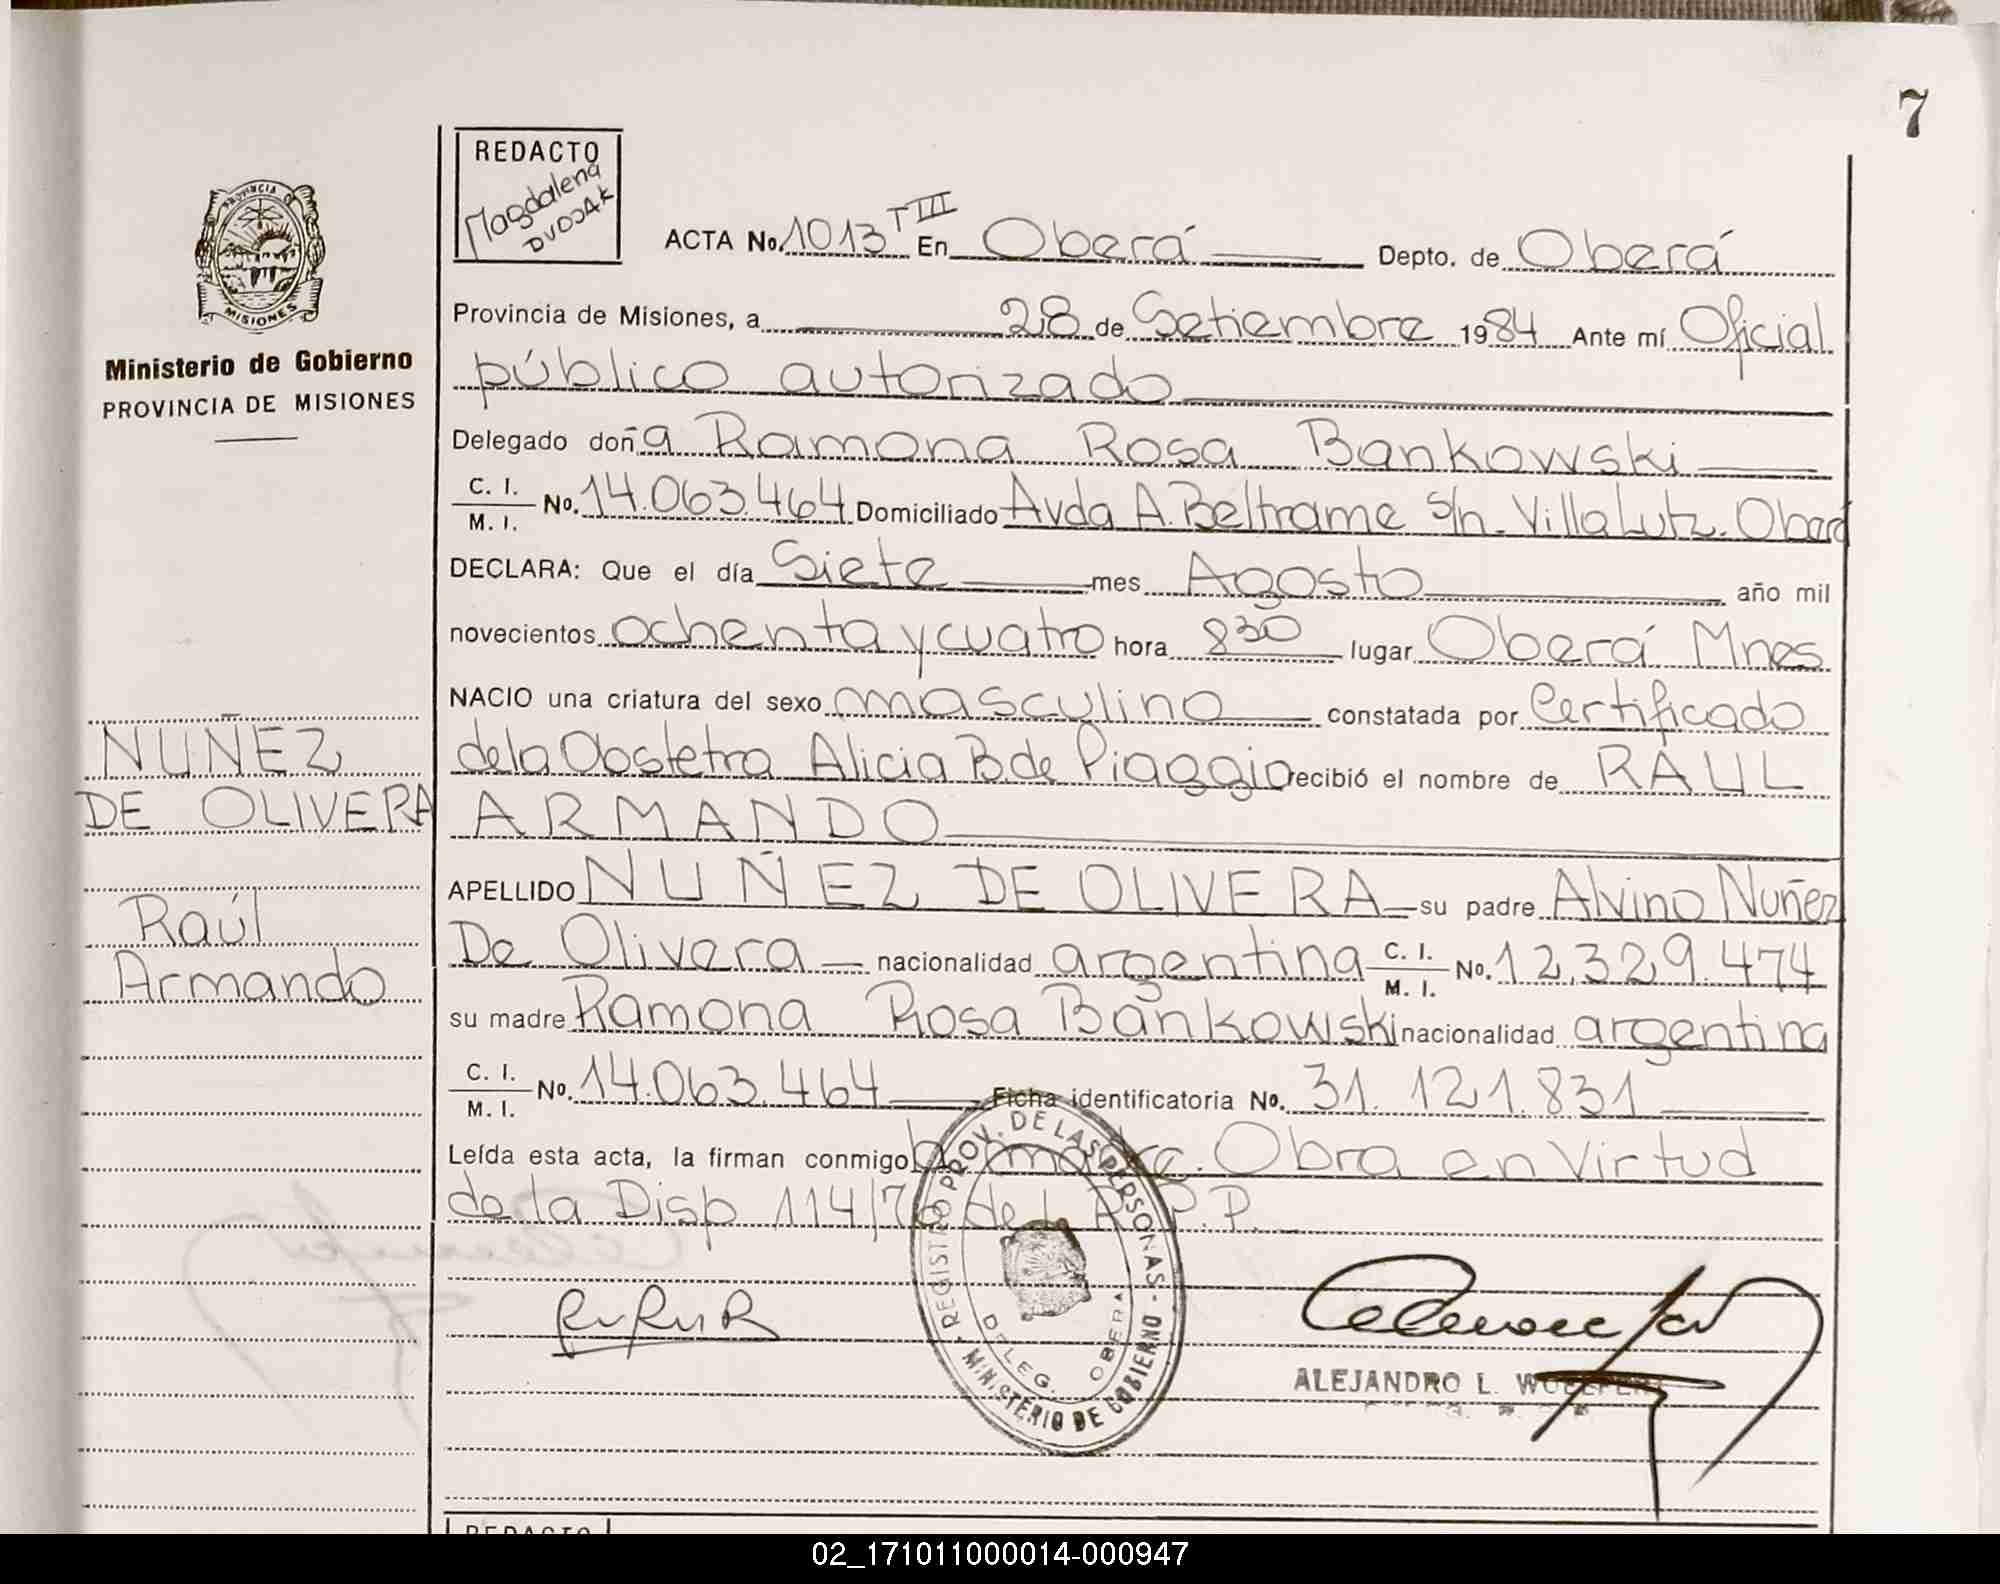 7
REDACTO
Magdalena
DVOJAK
PROVINCIA
MISIONES
Ministerio de Gobierno
PROVINCIA DE MISIONES
NUÑEZ
DE OLIVERA
Raúl
Armando
ACTA No. 1013 T III En Oberá Depto. de Oberá
Provincia de Misiones, a 28 de Setiembre 1984 Ante mí Oficial
público autorizado
Delegado doña Ramona Rosa Bankowski
C. I. / M. I. No. 14.063.464 Domiciliado Avda A. Beltrame s/n. Villa Lutz. Oberá
DECLARA: Que el día Siete mes Agosto año mil
novecientos ochenta y cuatro hora 8 30 lugar Oberá Mnes
NACIO una criatura del sexo masculino constatada por Certificado
de la Obstetra Alicia B de Piaggio recibió el nombre de RAUL
ARMANDO
APELLIDO NUÑEZ DE OLIVERA su padre Alvino Nuñez
De Olivera nacionalidad argentina C. I. / M. I. No. 12.329.474
su madre Ramona Rosa Bankowski nacionalidad argentina
C. I. / M. I. No. 14.063.464 Ficha identificatoria No. 31.121.831
Leída esta acta, la firman conmigo la madre. Obra en Virtud
de la Disp 114/76 del R.P.P.
REGISTRO PROV. DE LAS PERSONAS - MINISTERIO DE GOBIERNO -
DELEG. OBERA
ALEJANDRO L.
REDACTO
02_171011000014-000947